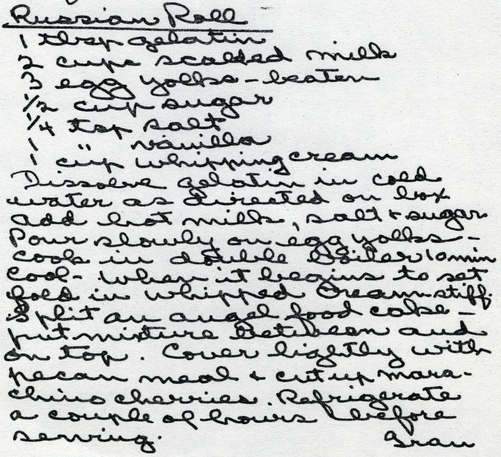 Russian Roll
1 tbsp gelatin
2 cups scalded milk
3 egg yolks - beaten
1/2 cup sugar
1/4 tsp salt
1 " vanilla
1 cup whipping cream
Dissolve gelatin in cold
water as directed on box
add hot milk, salt + sugar
Pour slowly on egg yolks -
cook in double boiler 10 min
Cool - when it begins to set
fold in whipped cream - stiff
Split an angel food cake -
put mixture between and
on top. Cover lightly with
pecan meal + cut up mara-
chino cherries. Refrigerate
a couple of hours before
serving. Gran